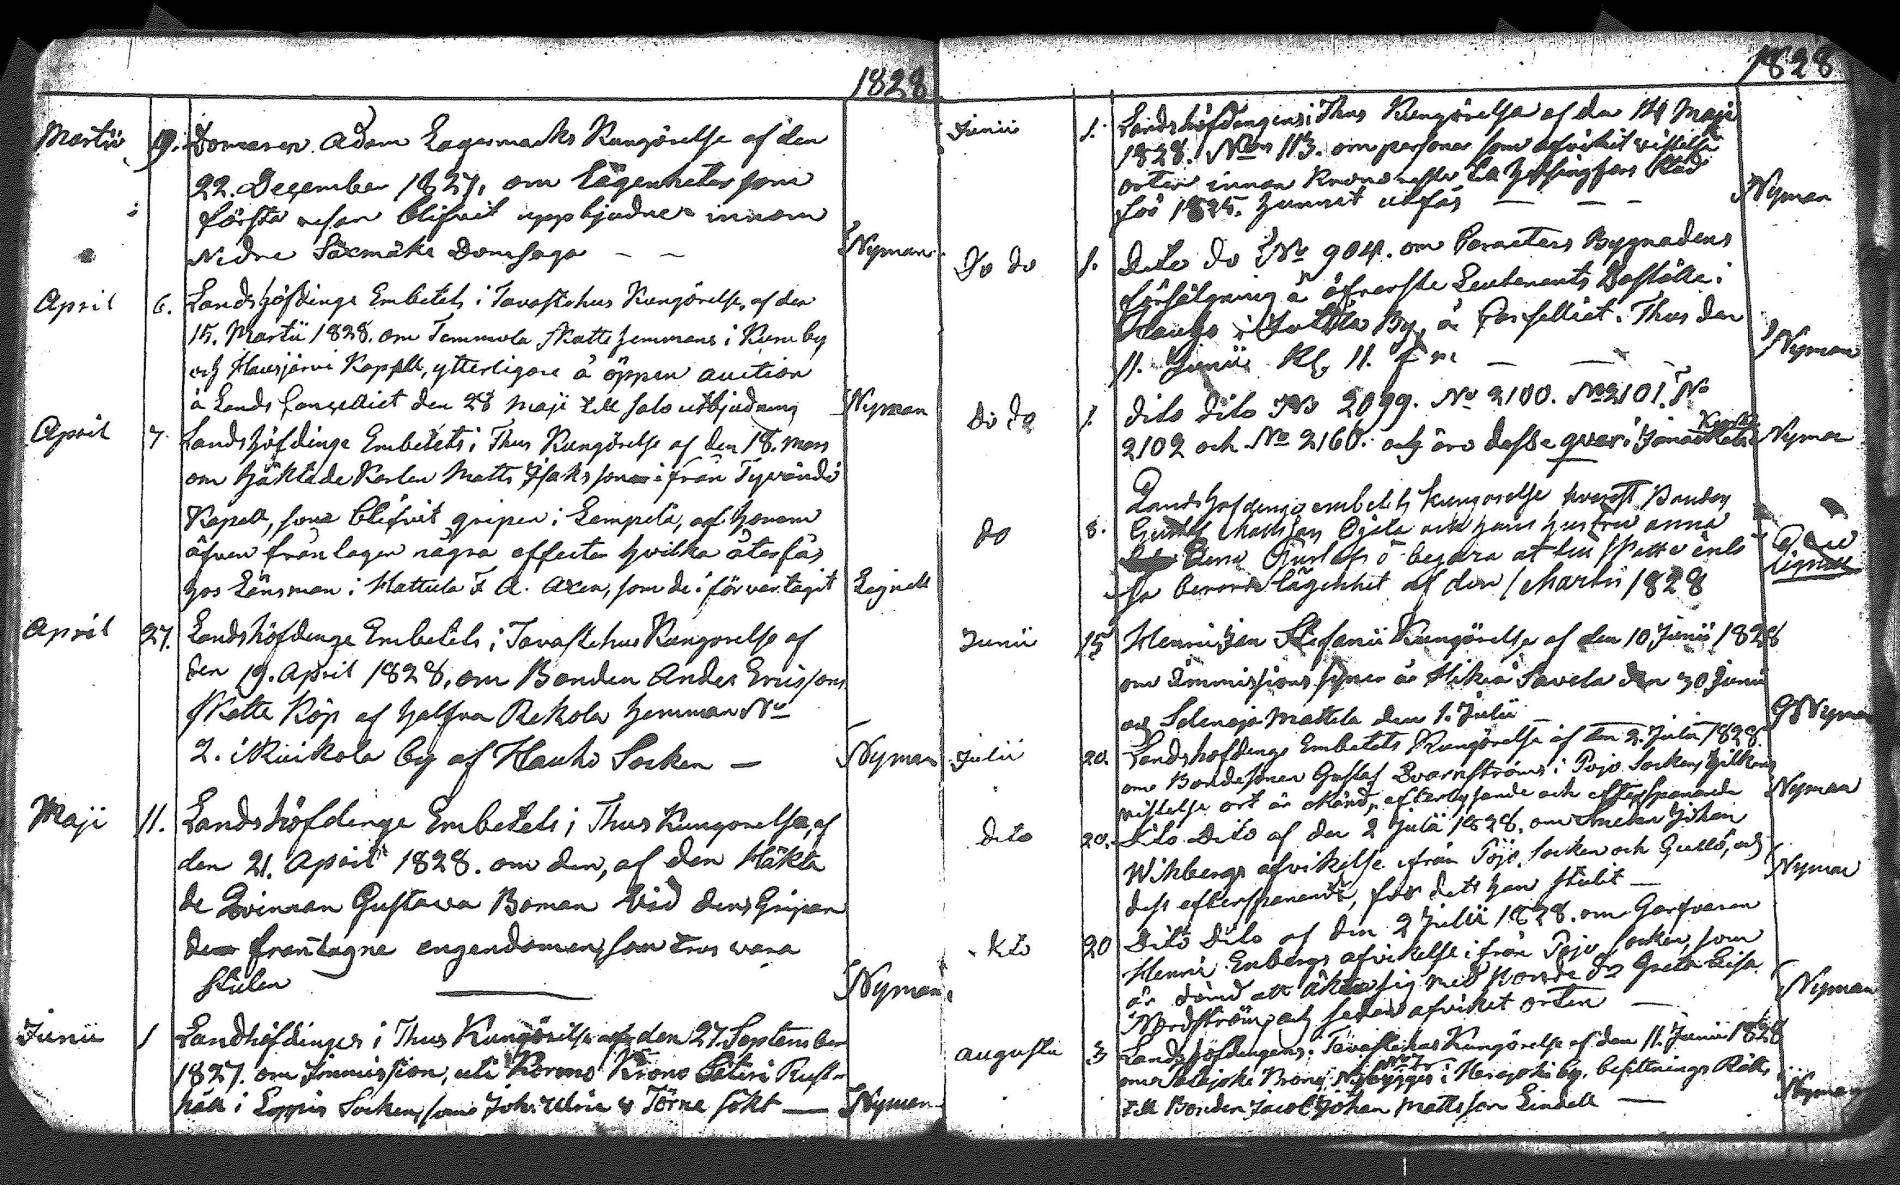 1828
Martii 9. Domaren Adam Lagermarks Kungörelse af den
22. December 1827, om lägenheter som
första resan blifvit uppbjudne innom
Nedre Säxmäki Domsaga — — Nyman
April 6. Landshöfdinge Embetets i Tavastehus Kungörelse, af den
15. Martii 1828. om Tommola Skatte Hemmans i Kuru by
och Hausjärvi Kapell, ytterligare å öppen auction
å Lands Cancelliet den 28 Maji till salo utbjudning Nyman
April 7. Landshöfdinge Embetets i Thus Kungörelse af den 18. Mars
om häktade Karlen Matts Isaksson ifrån Tyrvändö
Kapell, som blifvit gripen i Lempelä, af honom
äfven fråntagen några effecter hvilka återfås
hos Länsman i Hattula F A. Axen, som de i förvar tagit Lignell
April 27. Landshöfdinge Embetets i Tavastehus Kungorelse af
den 19. April 1828, om Bonden Anders Ericssons
Skatte Köp af halfva Rekola Hemman No
2. i by af Hauho Socken — Nyman
Maji 11. Landshöfdinge Embetets i Thus Kungorelse, af
den 21. April 1828. om den, af den Häkta
de Qvinnan Gustava Boman vid dess Gripan
de frantagne engendomen, som tros vara
stulen Nyman
Junii 1 Landhöfdinges i Thus Kungörelse af den 27. September
1827. om Immission, uti Kormo Krono Säteri Rust-
håll i Loppis Socken, som Joh. Ulric v Törne sökt — Nyman
1828
Junii 1. Landshöfdingens i Thus Kungörelse af den 14 Maji
1828. No 113. om personer som afvikit
orten innan Krono till Helsingfors Stad
för 1825. hunnit utfås — — — Nyman
Do do 1. Dito do No 904. om Caracters Bygnadens
försälgning å öfverste Leutenants Boställe i
Hauho i By, å Canselliet. Thus den
11. Junii Kl. 11. f m — — — Nyman
Do do 1. dito dito No 2099. No 2100. No 2101. No
2102 och No 2160. och äro desse qvar i Janakkala Kyrka Nyman
do 8. Landshöfdinge embetets kungorelse hvarest Bonden
Gustaf Mattsson Ojala och hans hustru Anna
Lena Gustafs D begära at till Skatte inlö-
sa berorde lägenhet af den 1 Martii 1828 Lignell
Junii 15 Henric Jan Stefanii Kungörelse af den 10 Junii 1828
om Immissions syner å Hikiä Savela den 30 Junii
och Selänoja Mattila den 1. Julii — G Nyman
Julii 20. Landshöfdinge Embetets Kungörelse af den 2. Julii 1828.
om Bondesonen Gustaf Qvarnströms i Pojo Socken, hvilkens
vistelse ort är okänd, efterlysande och efterspanande Nyman
Dito 20. Dito Dito af den 2 Julii 1828. om Johan
Wikbergs afvikelse ifrån Pojo Socken och Gullö, och
dess efterspanande, för det han stulit — Nyman
Dito 20 Dito Dito af den 2 Julii 1828. om Garfvaren
Henric Enbergs afvikelse ifrån Pojo Socken, som
är dömd att äkta sig med Greta Lisa
Nordström och sedan afviket orten — Nyman
Augustii 3 Landshöfdingens i Tavastehus Kungörelse af den 11. Junii 1828
om Krono Nybygges i by, besittnings Rätt
till Bonden Jacob Johan Mattsson Lindell — Nyman